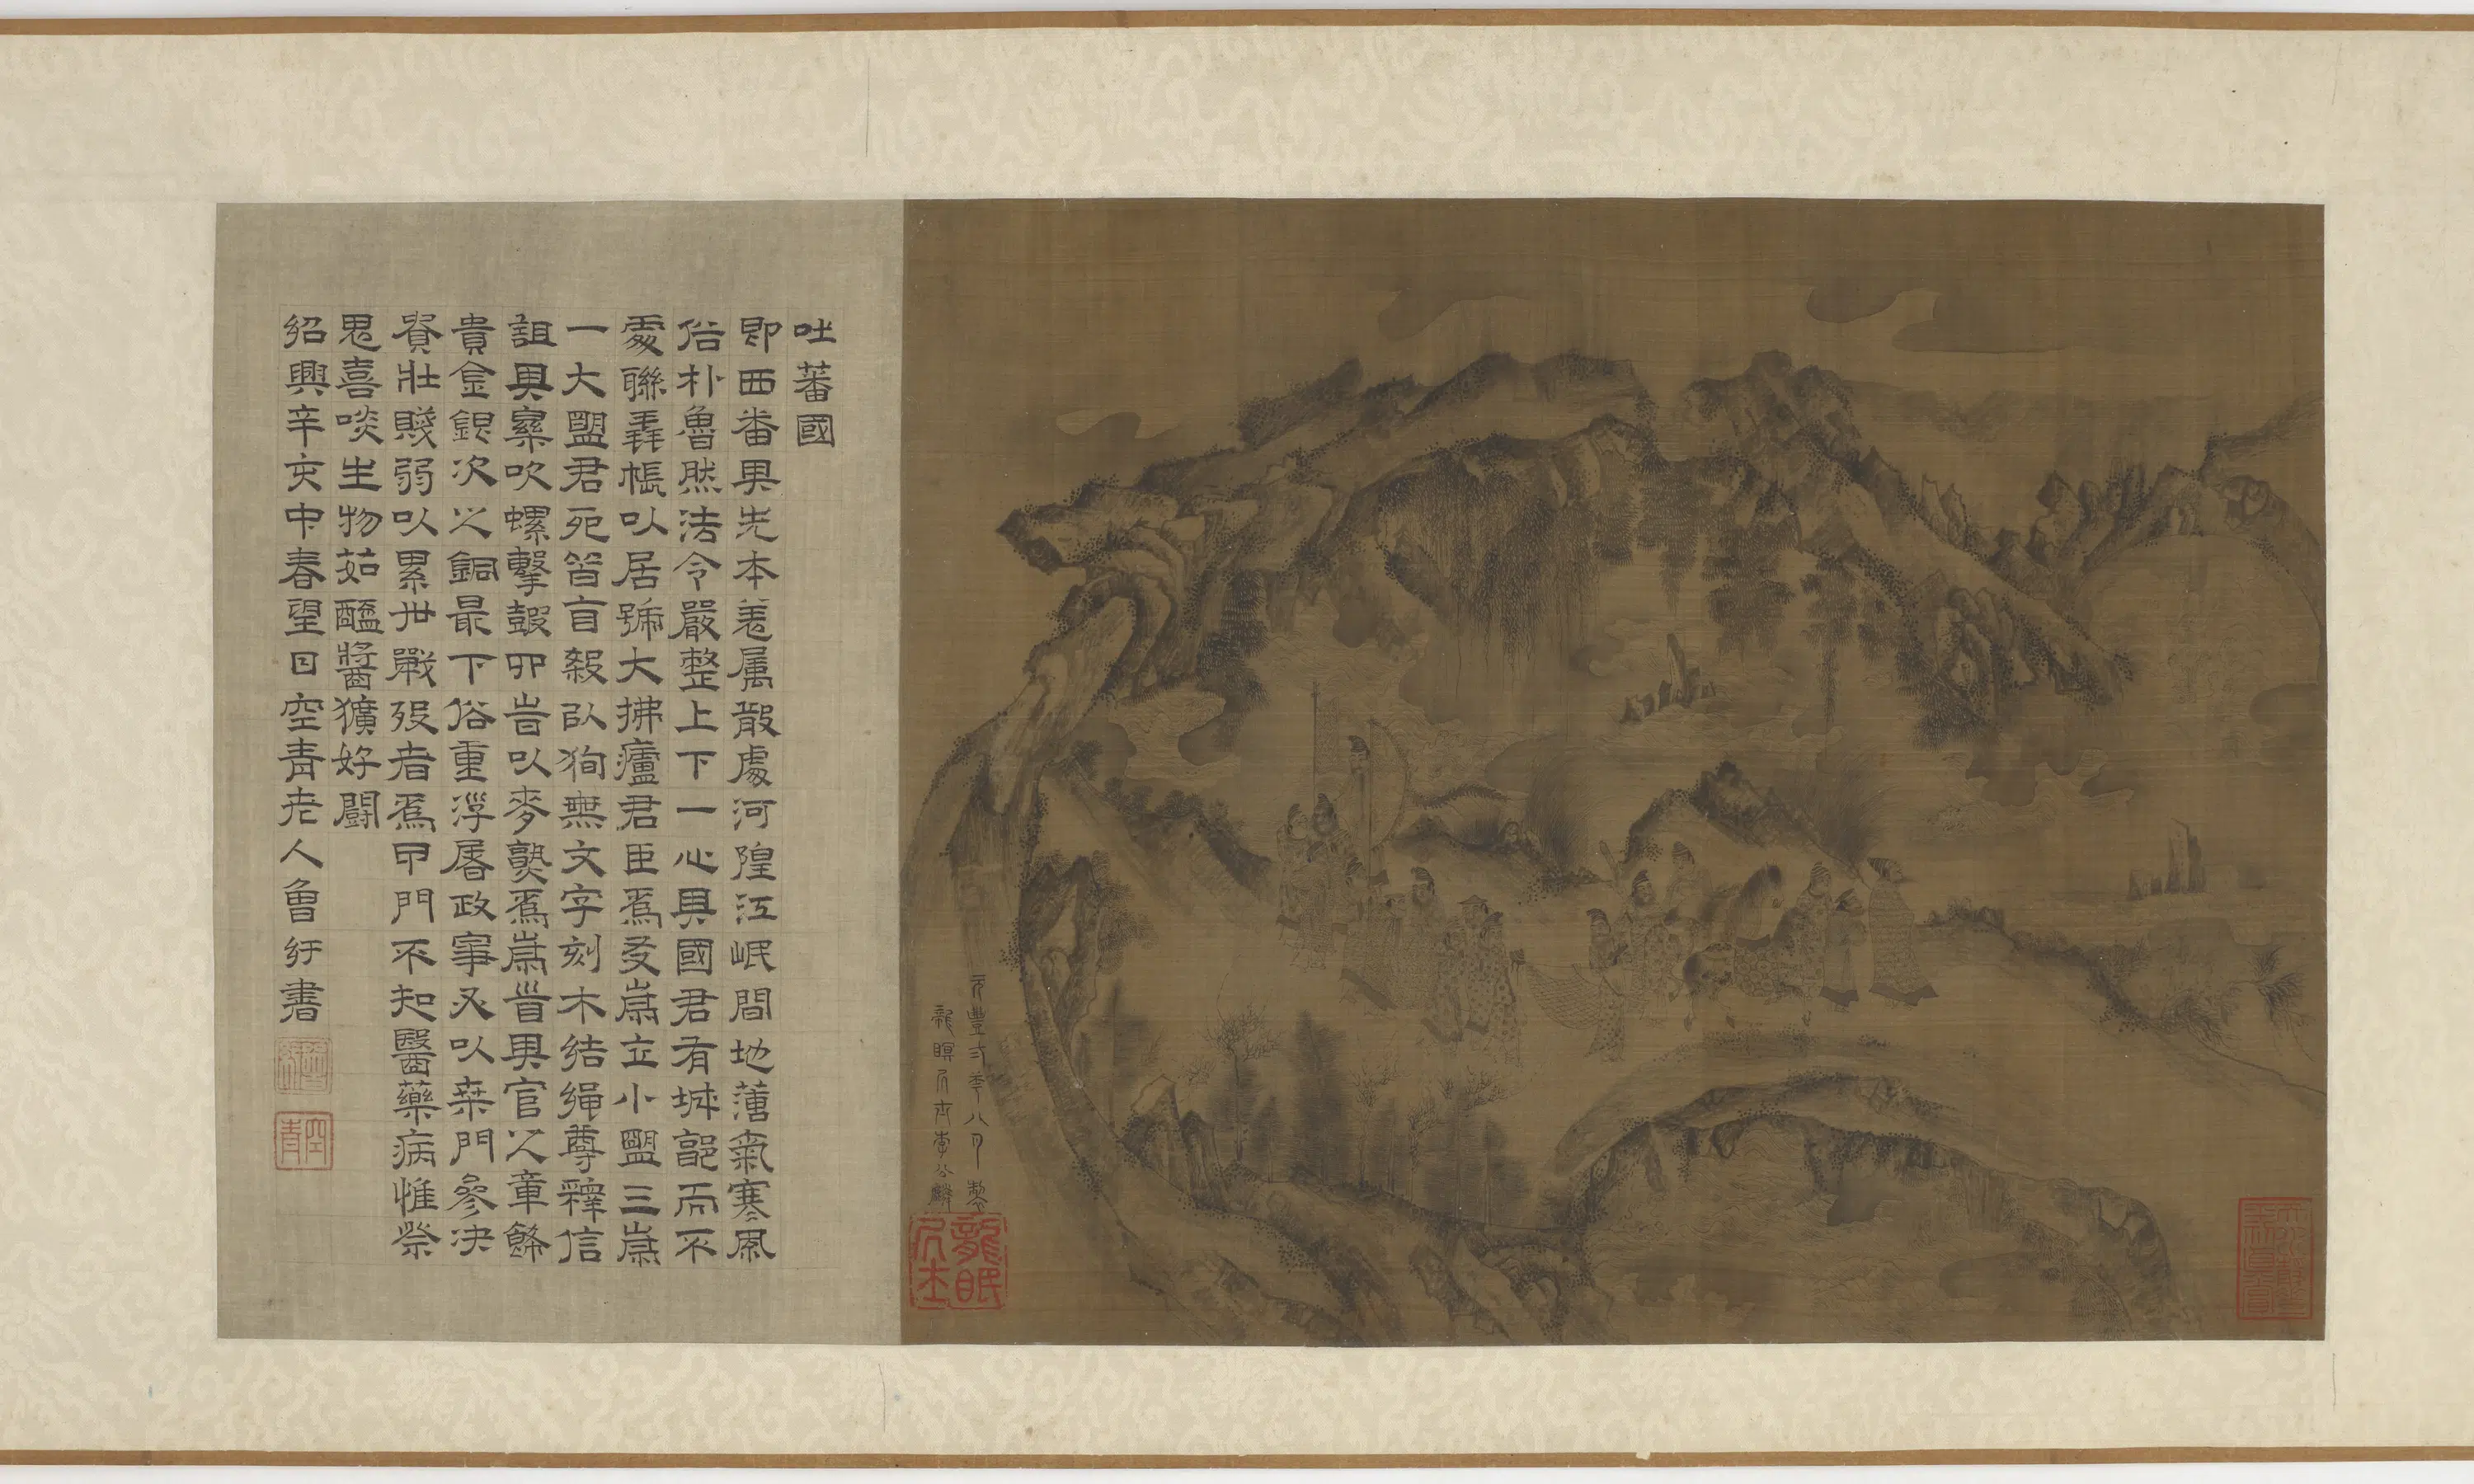 元豐弍年八月製
龍瞑居士李公麟
龍眠居士
吐蕃國
即西番其先本羌属散處河隍江岷間地薄氣寒風
俗朴魯然法令嚴整上下一心其國君有城郭而不
處聯毳帳以居號大拂廬君臣爲友歲立小盟三歲
一大盟君死皆自殺以狥無文字刻木結繩尊釋信
詛其樂吹螺擊鼓四時以麥熟爲歲首其官之章飾
貴金銀次之銅最下俗重浮屠政事必以桒門參决
貴壯賤弱以累世戰歿者爲甲門不知醫藥病惟祭
鬼喜啖生物茹醢醬獷好鬭
紹興辛亥中春望日空青老人曾紆書
空青